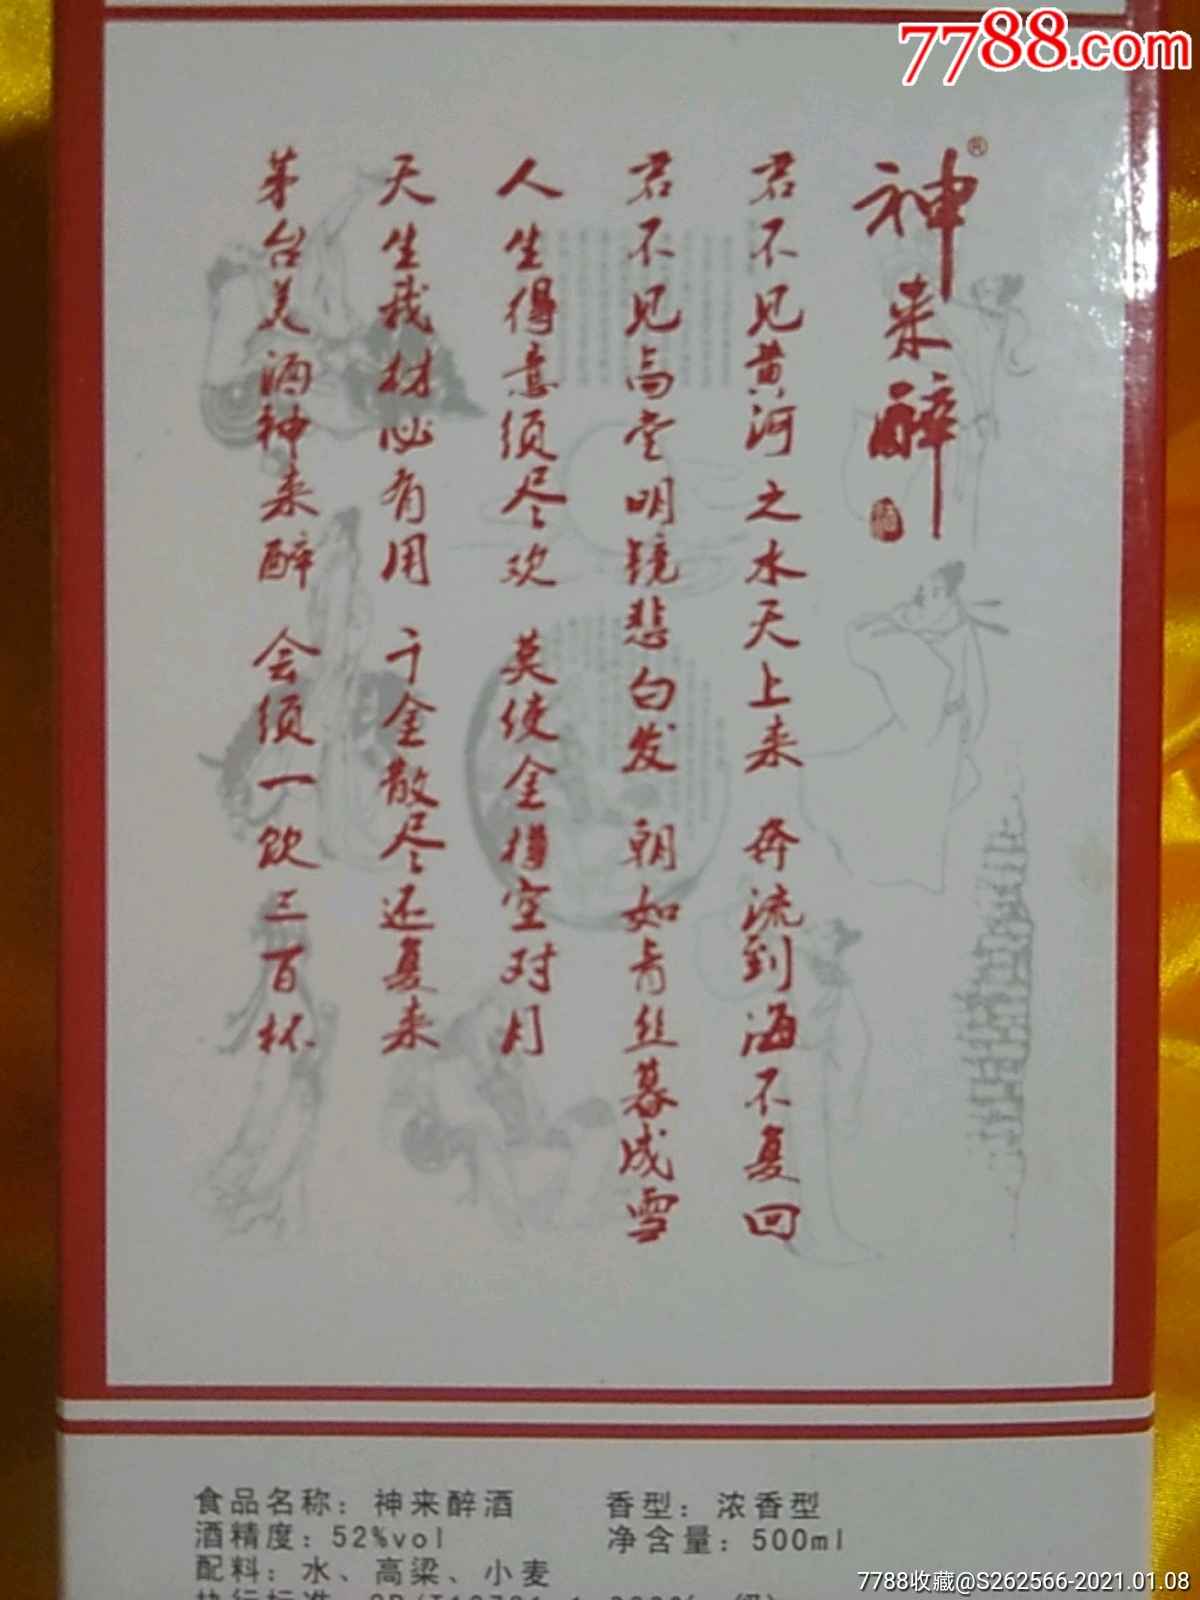 7788.com
神来醉®
君不见黄河之水天上来 奔流到海不复回
君不见高堂明镜悲白发 朝如青丝暮成雪
人生得意须尽欢 莫使金樽空对月
天生我材必有用 千金散尽还复来
茅台美酒神来醉 会须一饮三百杯
食品名称：神来醉酒 香型：浓香型
酒精度：52%vol 净含量：500ml
配料：水、高粱、小麦
执行标准
7788收藏@S262566-2021.01.08